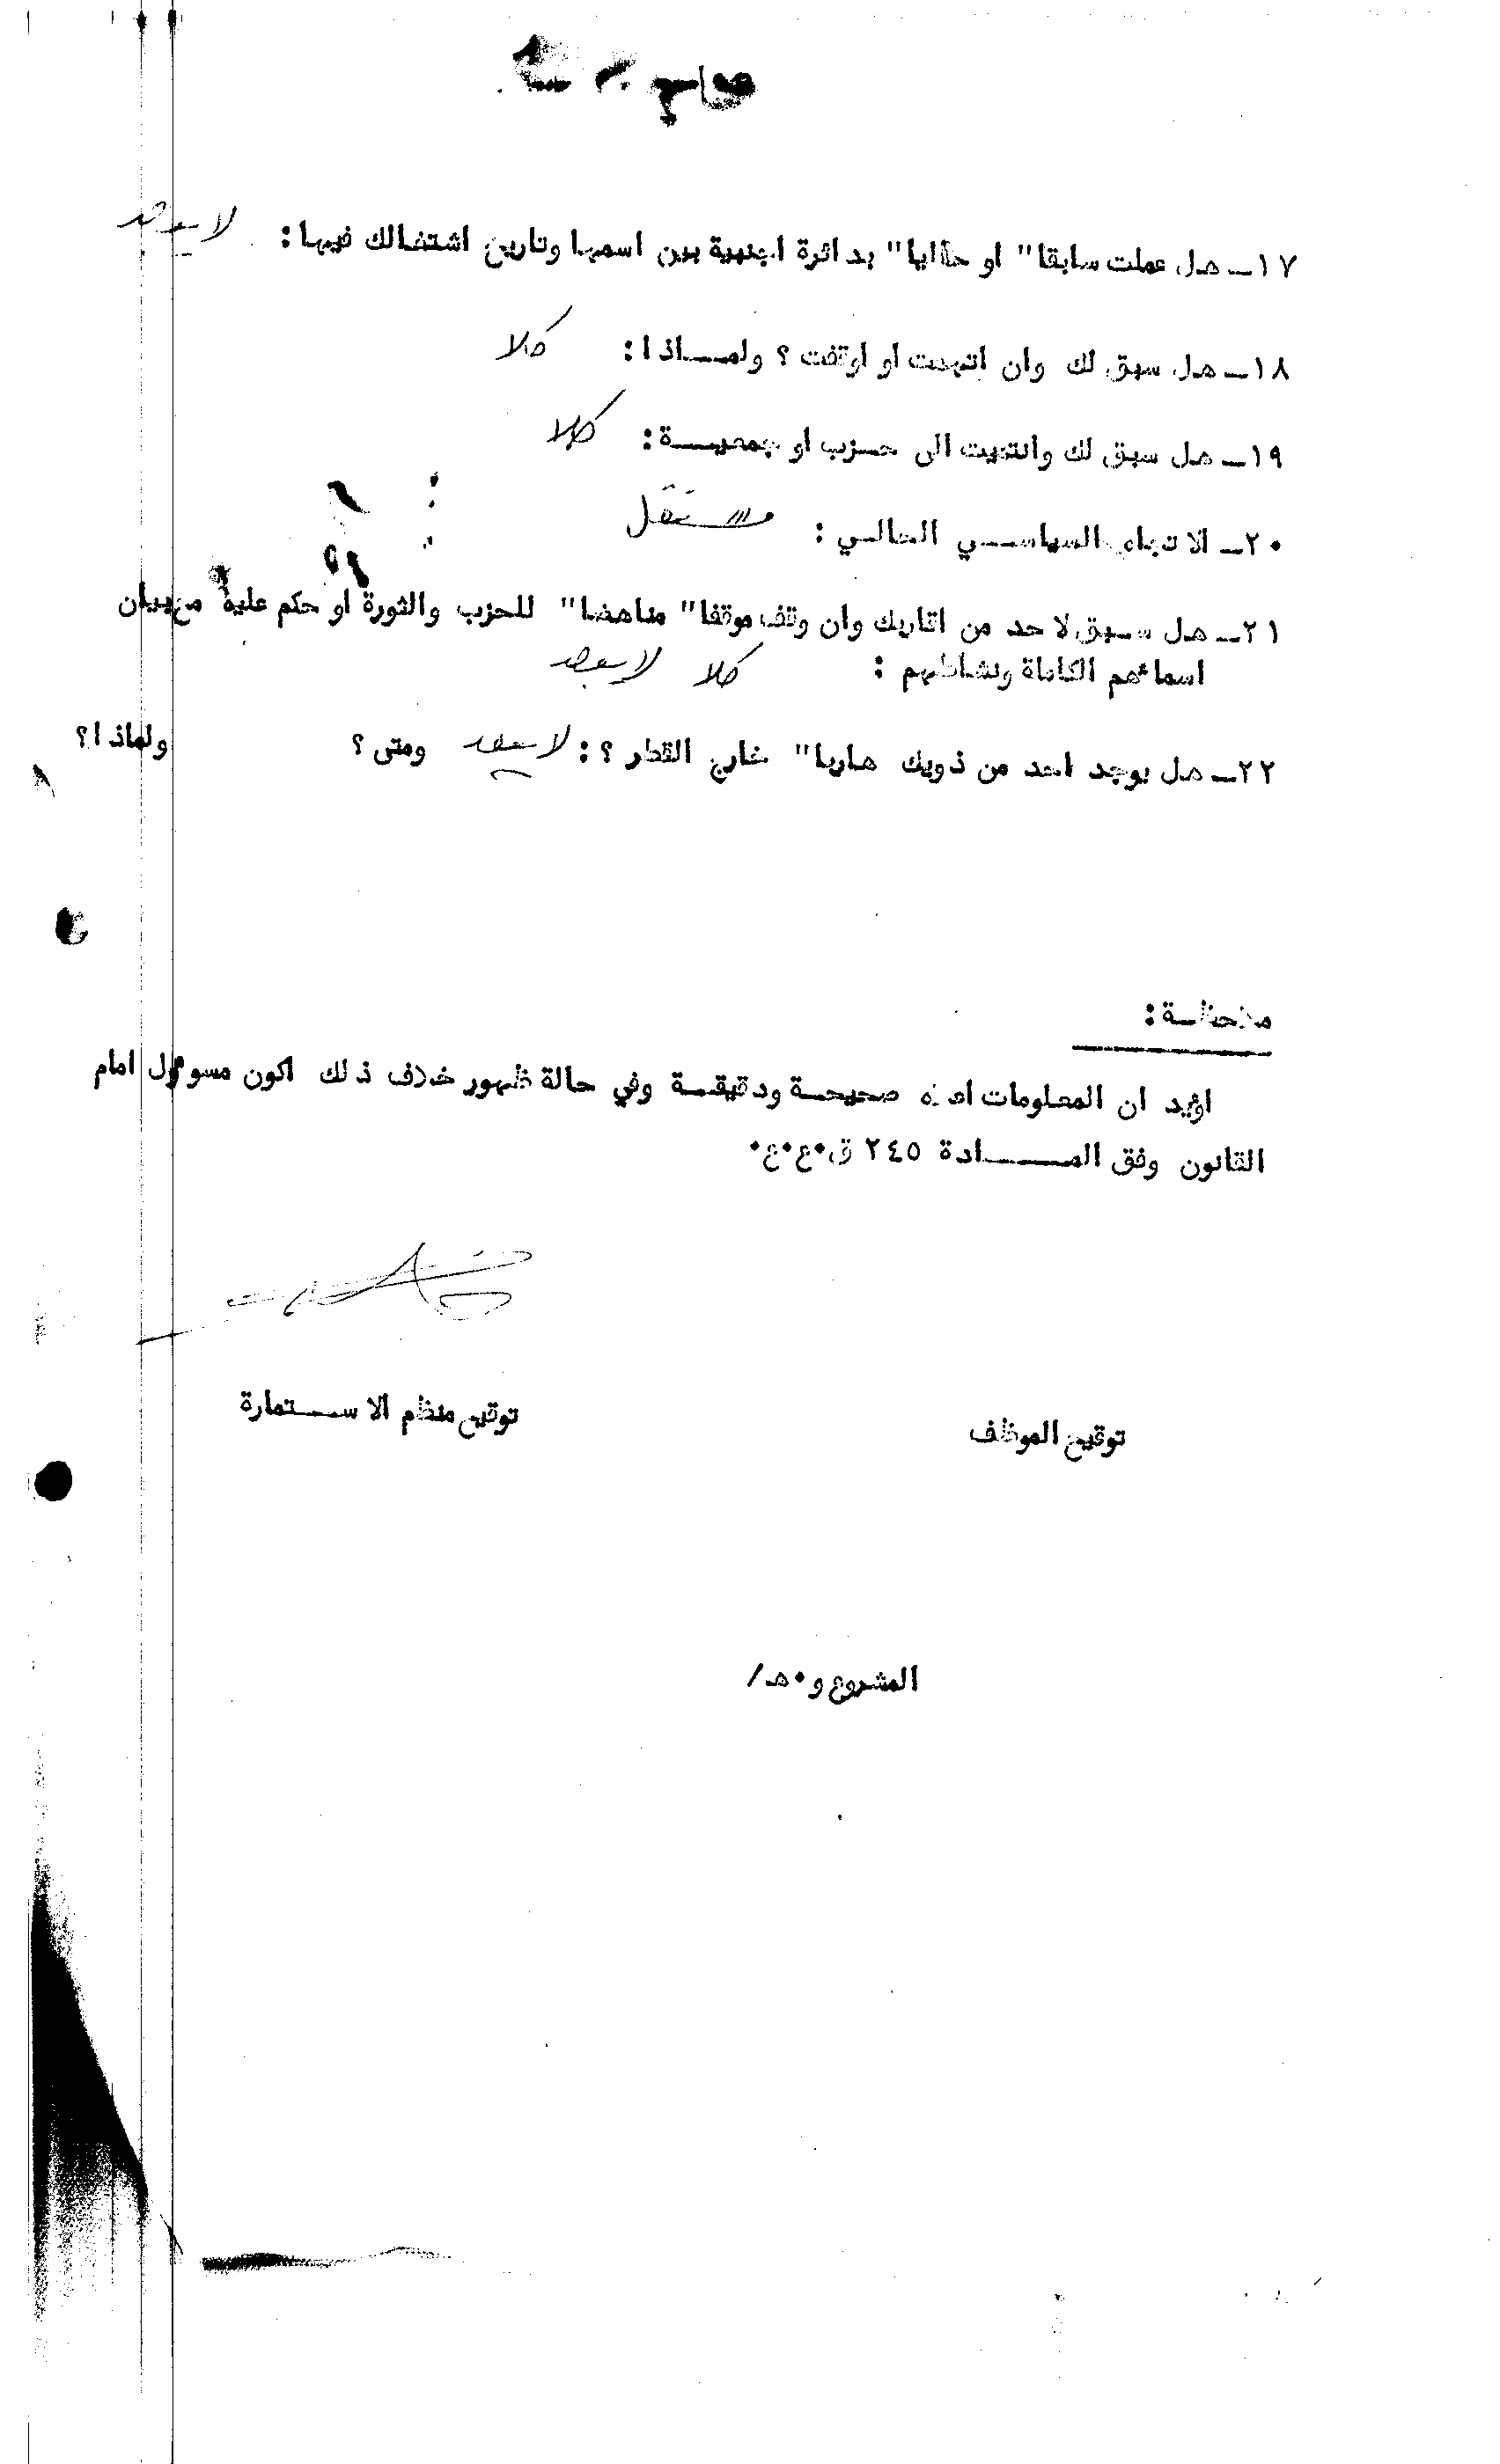 ١٧ــ هل عملت سابقا" او حاليا" بدائرة اجنبية بين اسمها وتاريخ اشتغالك فيها : لا يوجد
١٨ــ هل سبق لك وان اتهمت او اوقفت ؟ ولمـــاذا : كلا
١٩ــ هل سبق لك وانتميت الى حــزب او جمعيـــة : كلا
٢٠ــ الاتجاه السياســـي الحالـي : مستقل
٢١ــ هل سـبق لاحد من اقاربك وان وقف موقفا" مناهضا" للحزب والثورة او حكم عليه مع بيان
اسمائهم الكاملة ونشاطهم : كلا لا يوجد
٢٢ــ هل يوجد احد من ذويك هاربا" خارج القطر ؟ : لا يوجد ومتى ؟ ولماذا ؟
ملاحظـة :
اؤيد ان المعلومات اعلاه صحيحـة ودقيقـة وفي حالة ظهور خلاف ذلك اكون مسوءول امام
القانون وفق المـــــادة ٢٤٥ ق٠ع٠ع٠
توقيع الموظف توقيع منظم الاســـتمارة
المشروع و٠هـ/